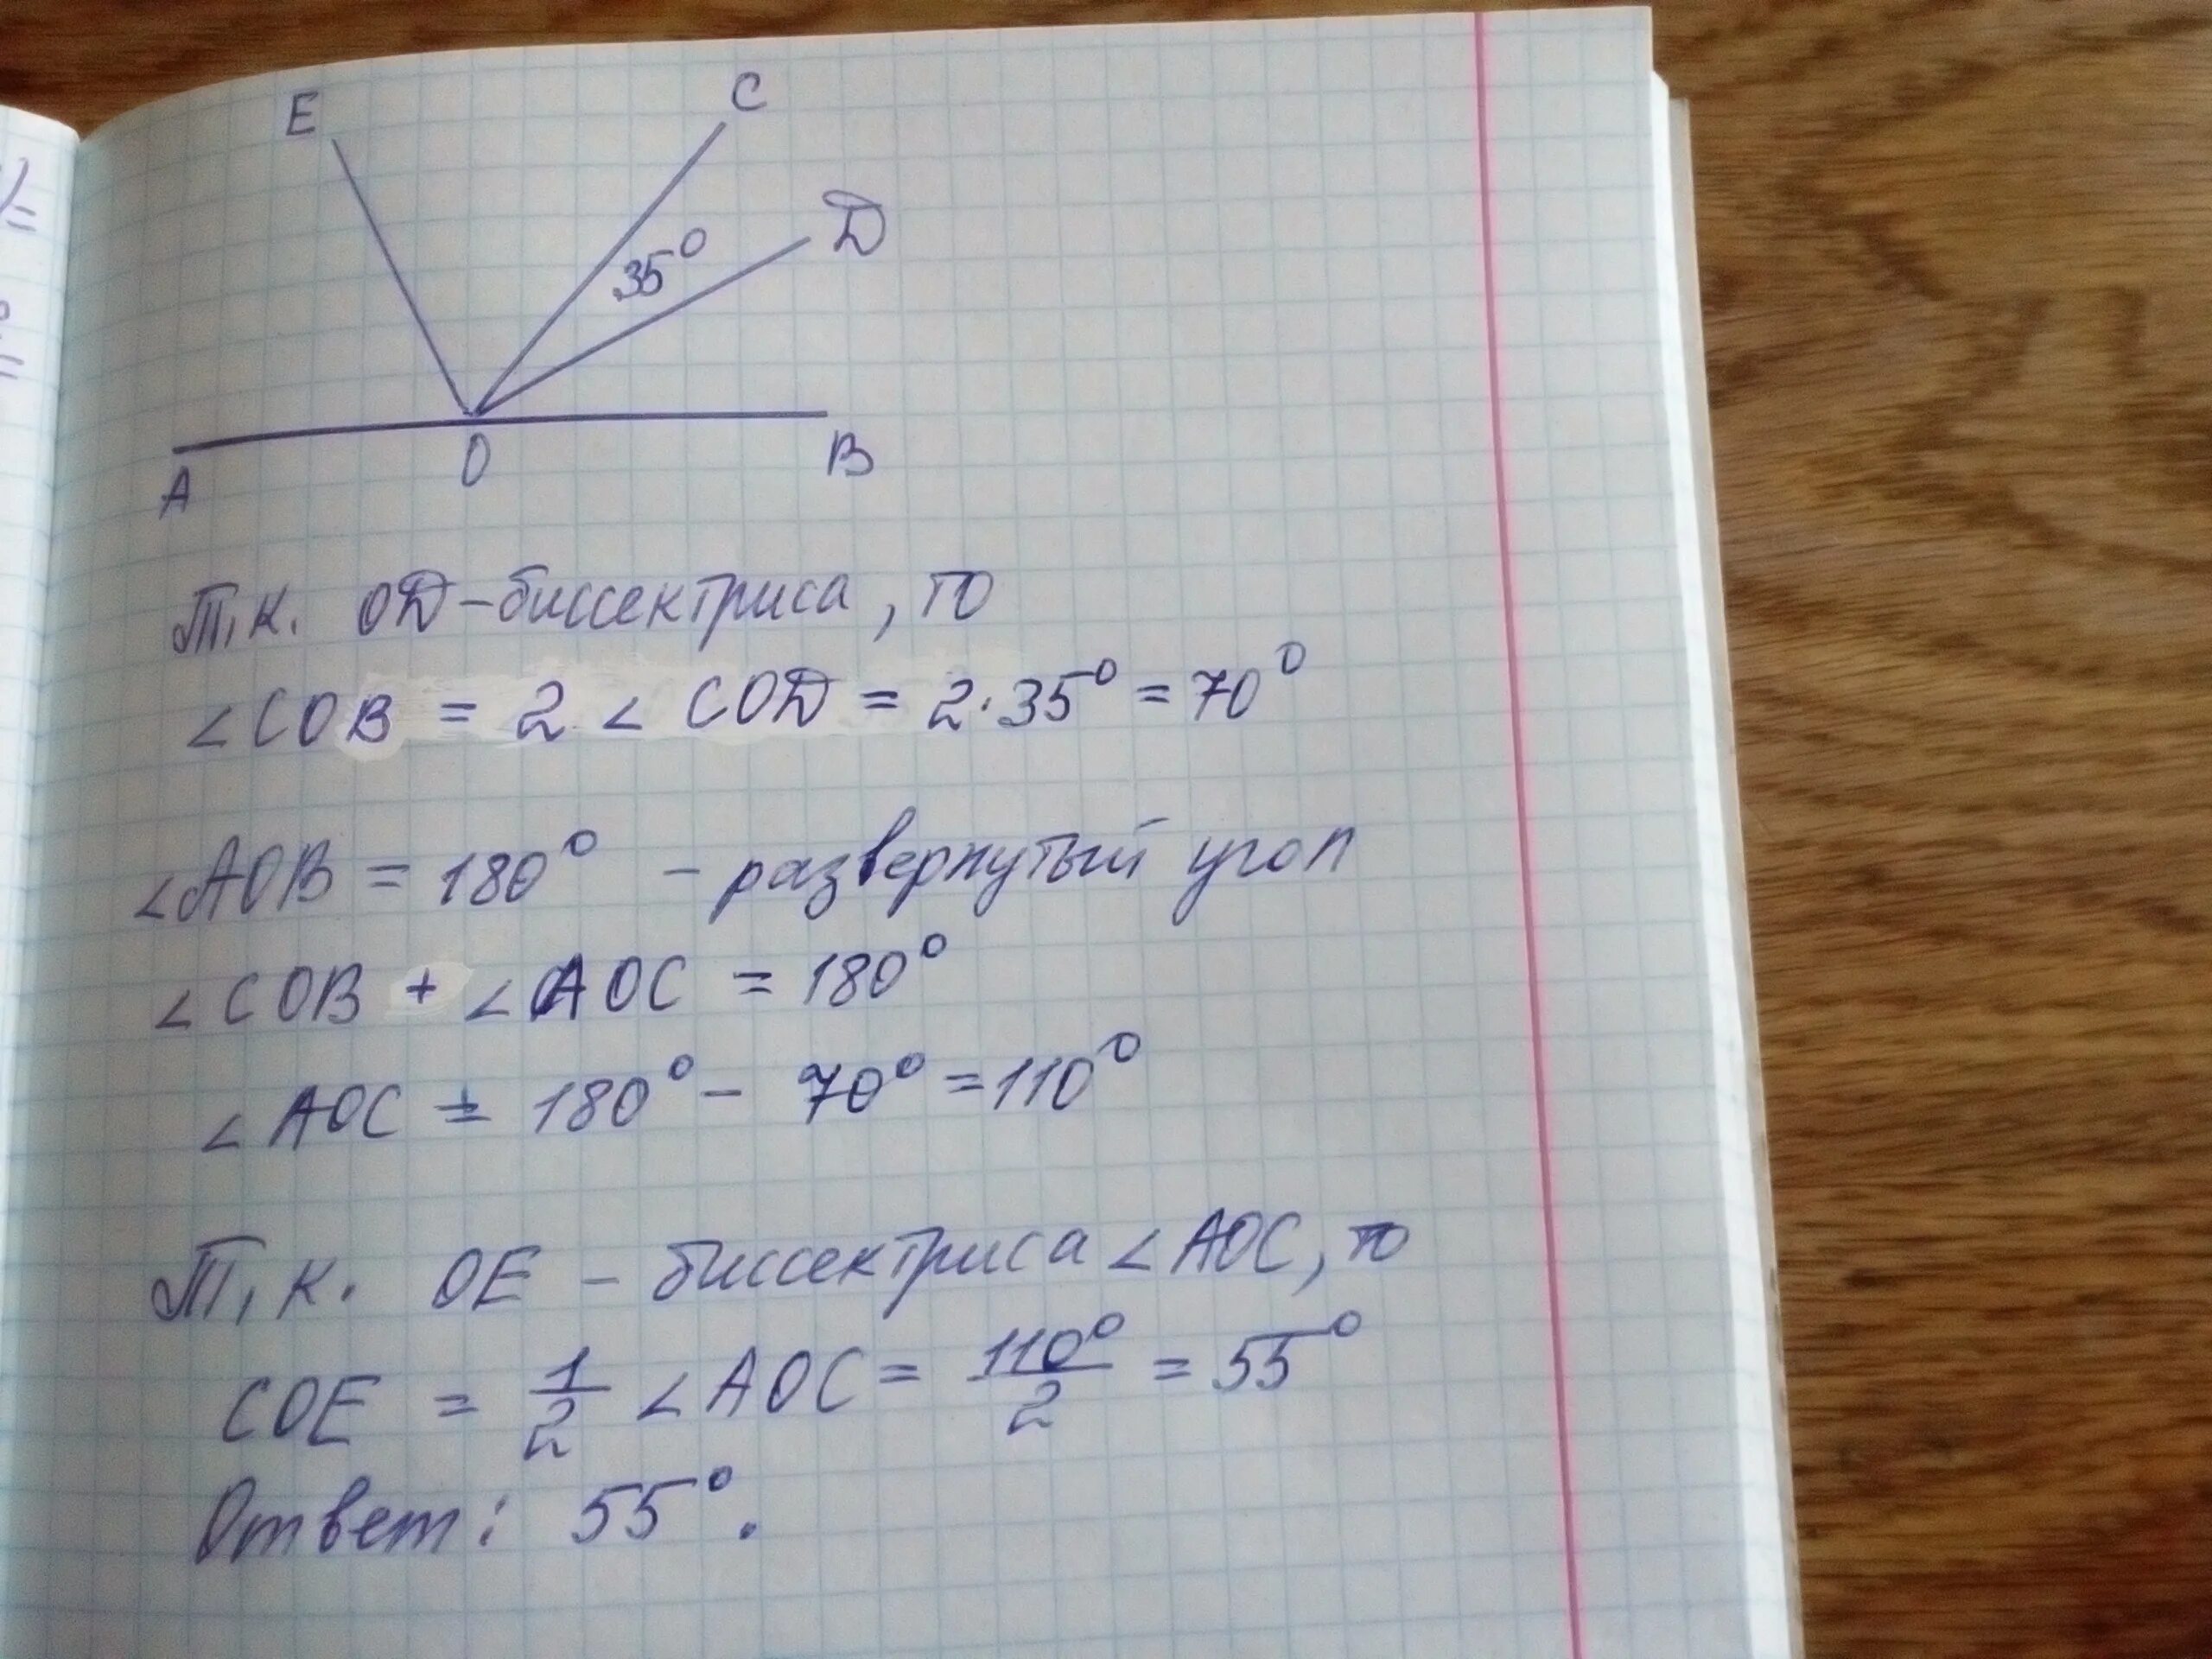 E C
D
35°
A O B
Т.к. OD - биссектриса, то
∠COB = 2 ∠ COD = 2·35° = 70°
∠AOB = 180° - развернутый угол
∠COB + ∠AOC = 180°
∠AOC = 180° - 70° = 110°
Т.к. OE - биссектриса ∠AOC, то
COE = 1/2 ∠AOC = 110°/2 = 55°
Ответ: 55°.